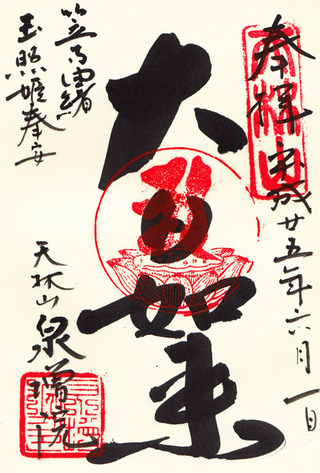 奉拝 平成廿五年六月一日
大日如来
笠寺由緒
玉照姫奉安
天林山泉増院